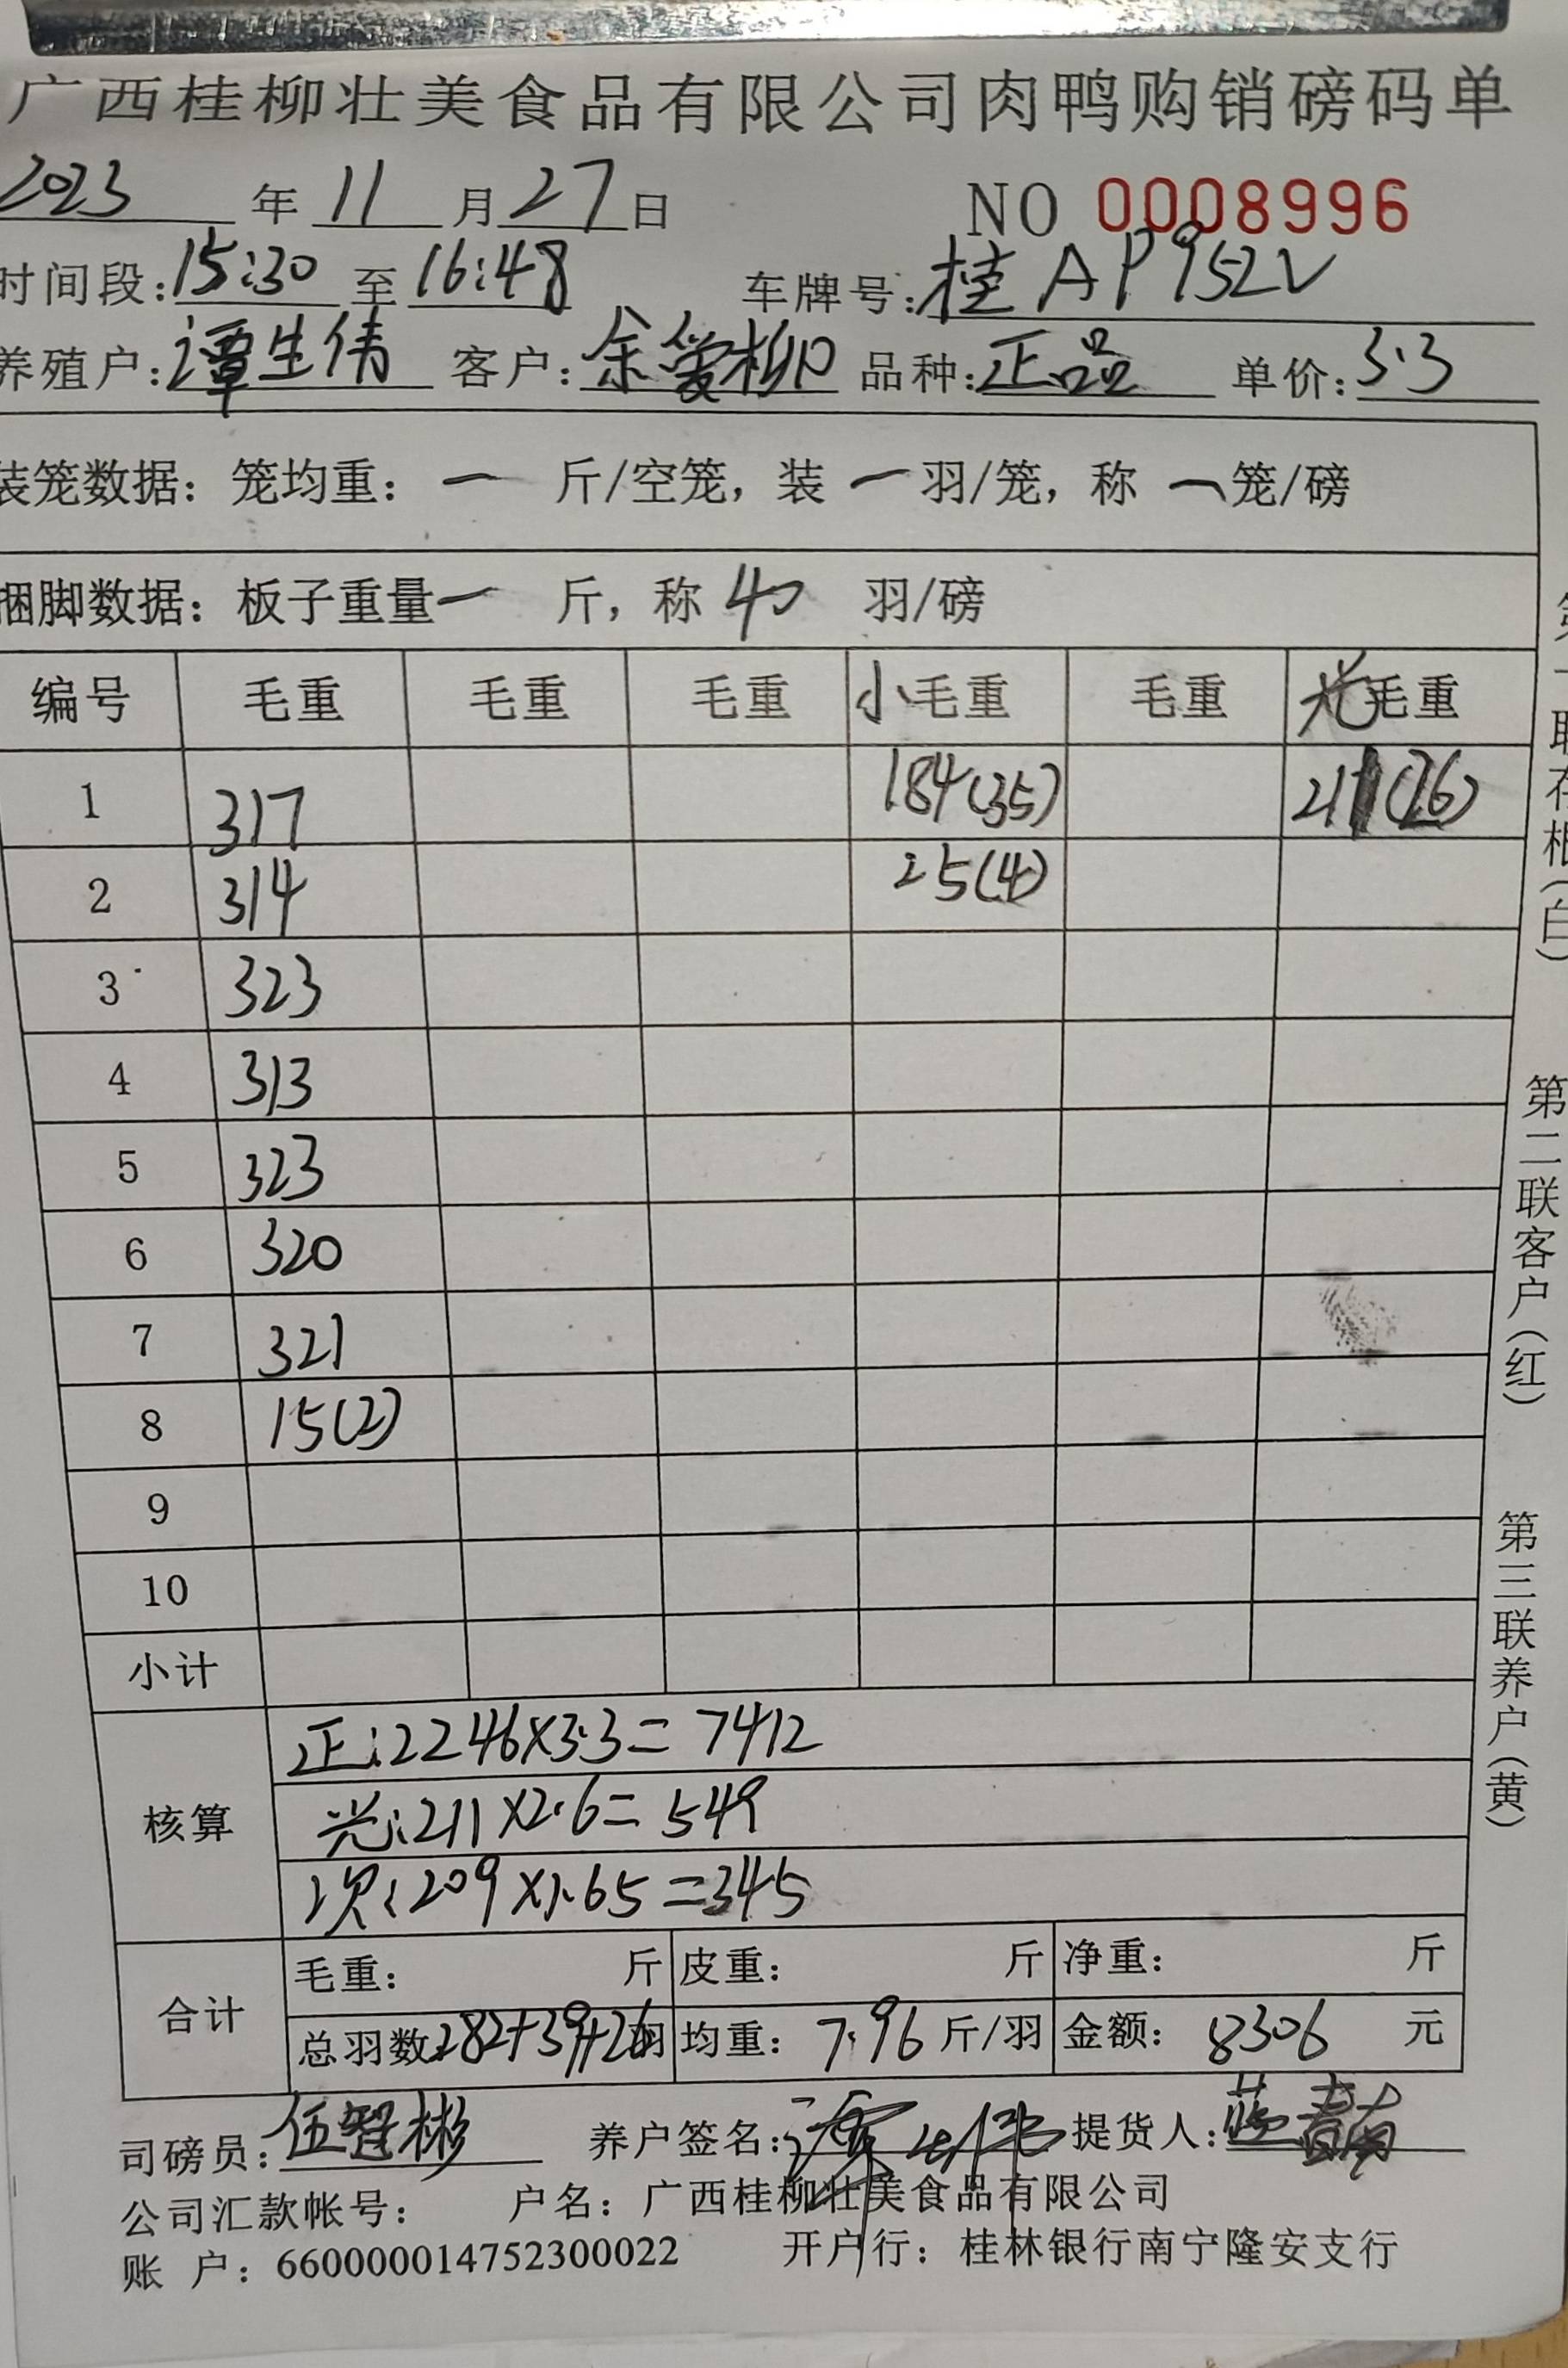 广西桂柳壮美食品有限公司肉鸭购销磅码单
2023 年 11 月 27 日 NO 0008996
时间段:15:30 至 16:48 车牌号:桂AP952V
养殖户:谭生伟 客户:余爱柳 品种:正品 单价:3.3
装笼数据:笼均重: 一 斤/空笼,装 一 羽/笼,称 一 笼/磅
捆脚数据:板子重量 一 斤,称 40 羽/磅
编号 毛重 毛重 毛重 小毛重 毛重 光毛重
1 317 184(35) 211(26)
2 314 25(4)
3 323
4 313
5 323
6 320
7 321
8 15(2)
9
10
小计
核算 正:2246×3.3=7412
光:211×2.6=549
次:209×1.65=345
合计 毛重: 斤 皮重: 斤 净重: 斤
总羽数:282+39+26羽 均重: 7.96 斤/羽 金额: 8306 元
司磅员: 养户签名: 提货人:
公司汇款帐号: 户名:广西桂柳壮美食品有限公司
账 户:660000014752300022 开户行:桂林银行南宁隆安支行
第一联存根(白)
第二联客户(红)
第三联养户(黄)